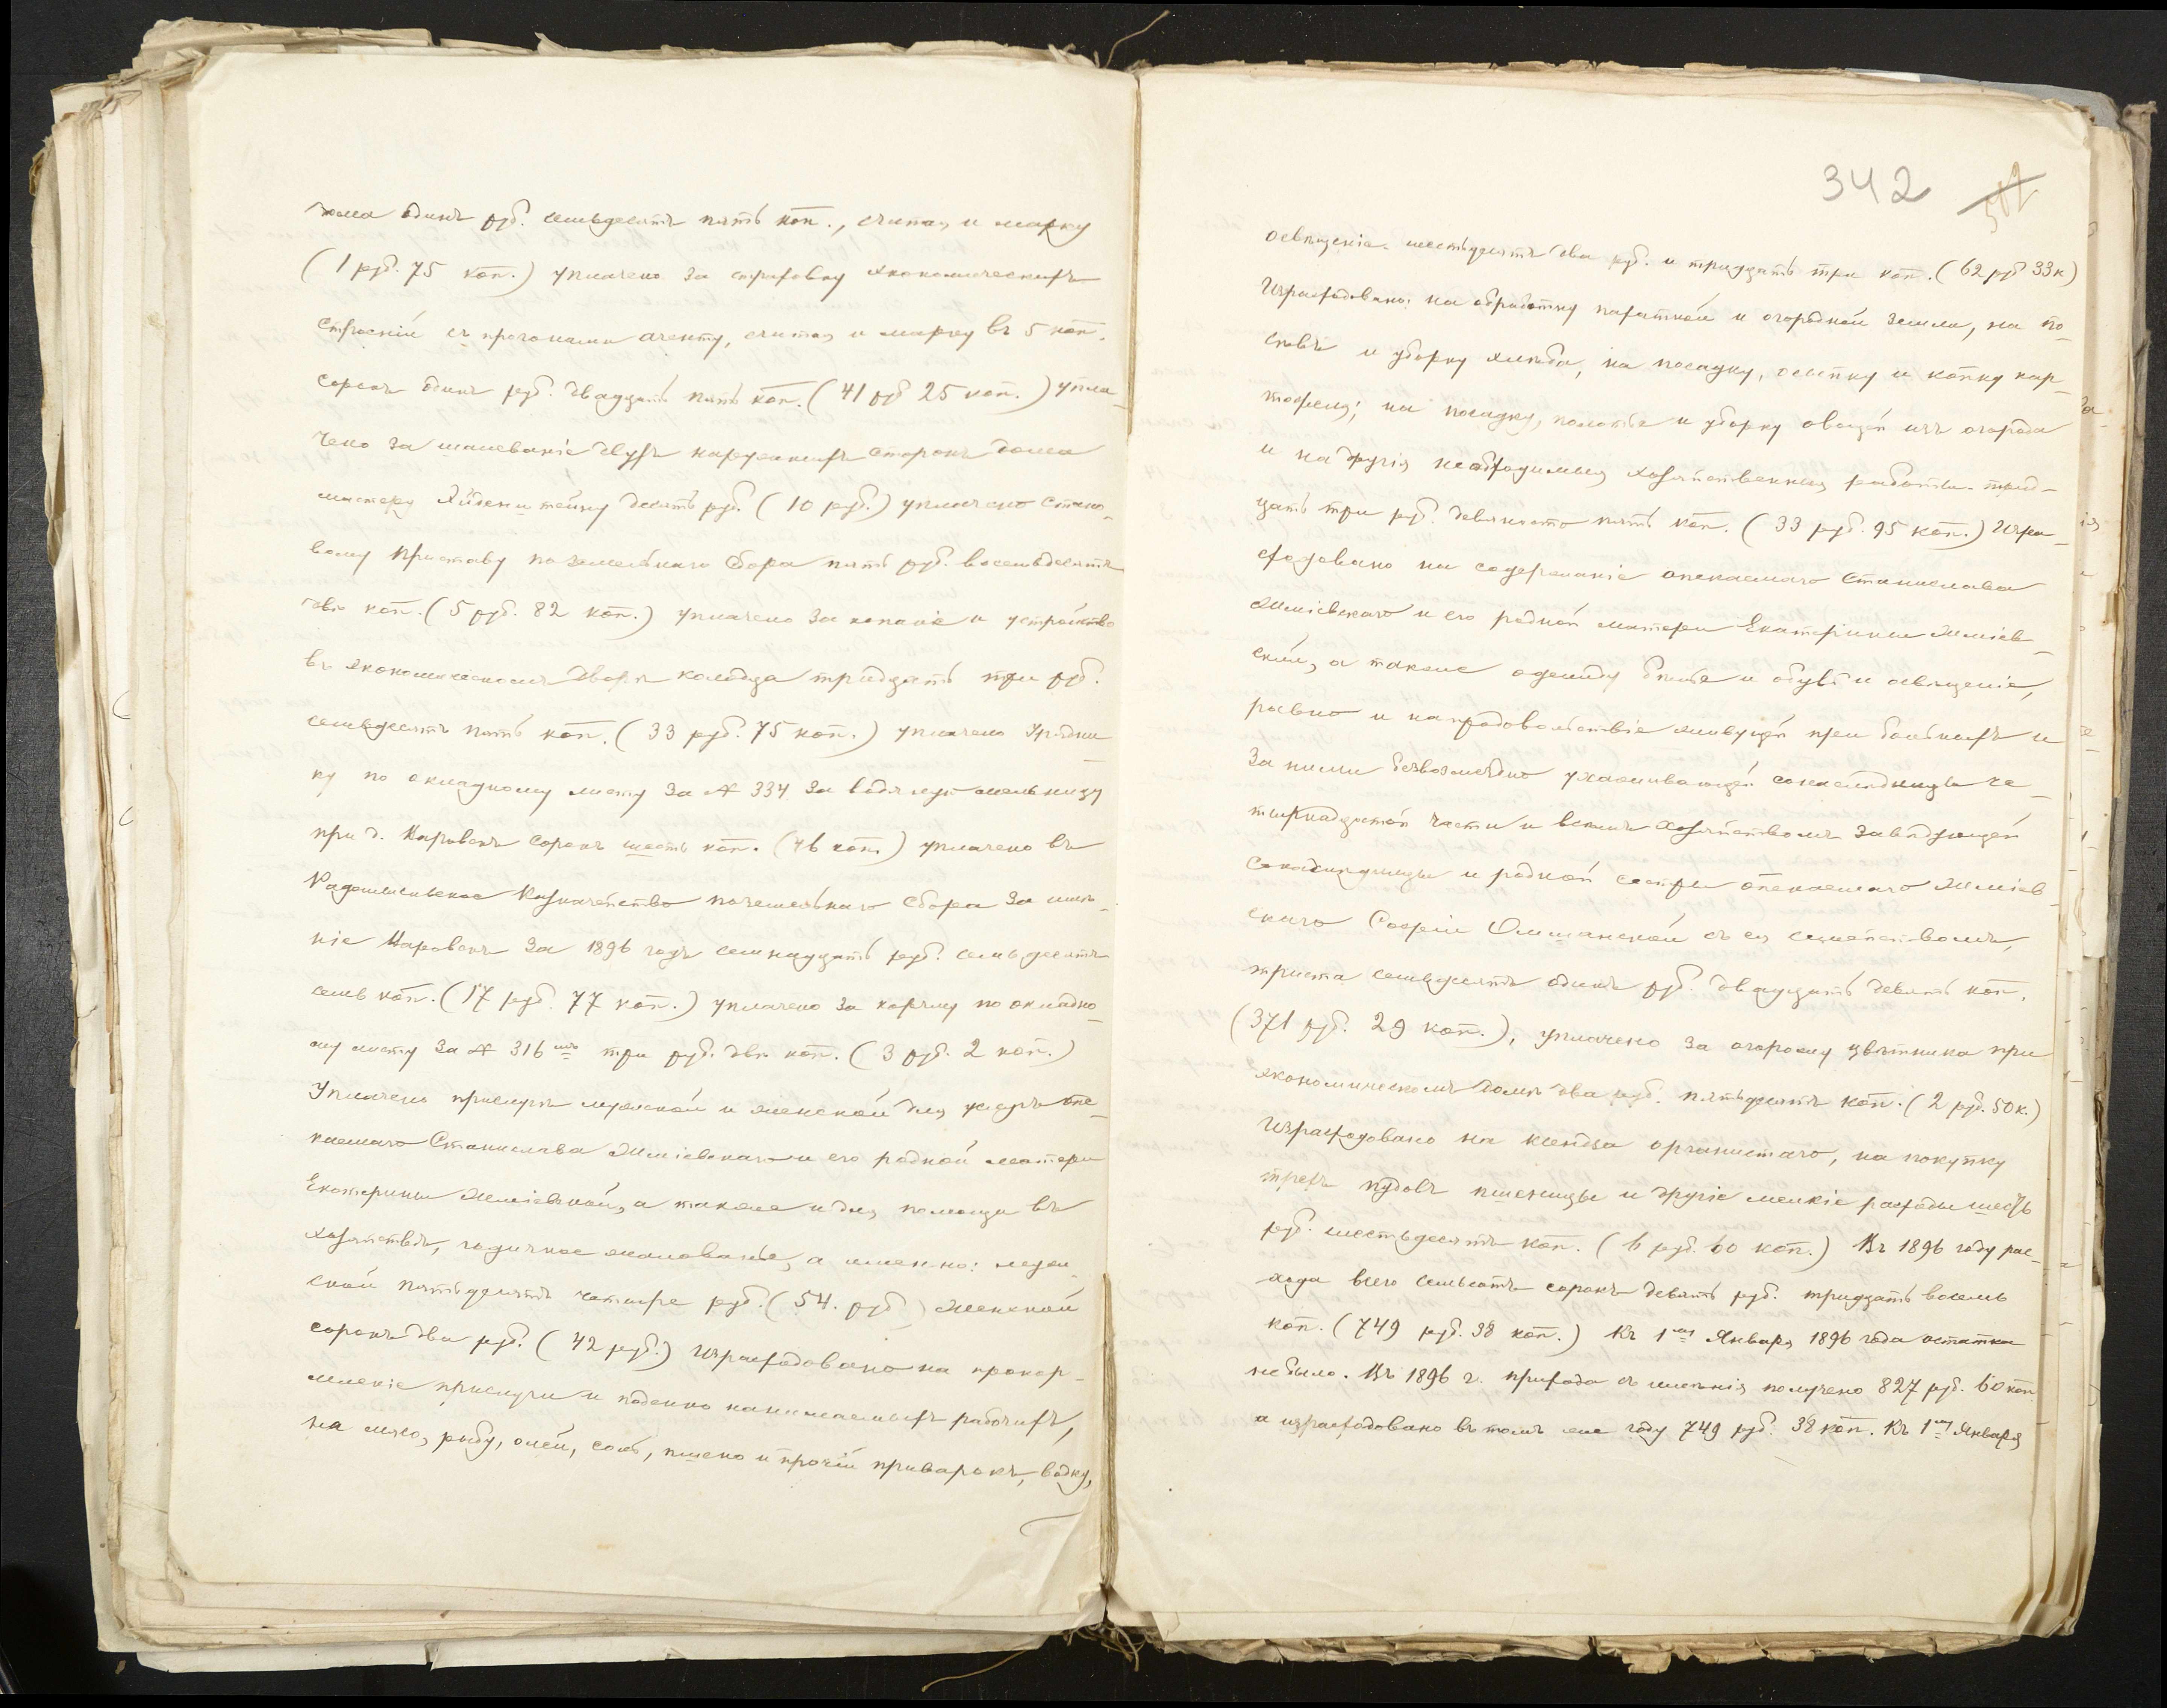 дома одинъ руб. семьдесятъ пять коп., считая и марку
(1 руб. 75 коп.) уплачено за страховку экономическихъ
строеній съ прогонами агенту, считая и марку въ 5 коп.
сорокъ одинъ руб. двадцать пять коп. (41 руб 25 коп.) упла-
чено за шалеваніе двухъ наружныхъ сторонъ дома
мастеру десять руб. (10 руб.) уплачено Стано-
вому Приставу поземельнаго сбора пять руб. восемьдесятъ
двѣ коп. (5 руб. 82 коп.) уплачено за копаніе и устройство
въ экономическомъ дворѣ колодца тридцать три руб.
семьдесятъ пять коп. (33 руб. 75 коп.) уплачено Урядни-
ку по окладному листу за № 334 за водяную мельницу
при д. сорокъ шесть коп. (46 коп.) уплачено въ
Радомысльское Казначейство поземельнаго сбора за имѣ-
ніе за 1896 годъ семнадцать руб. семьдесятъ
семь коп. (17 руб. 77 коп.) уплачено за корчму по окладно-
му листу за № 316 три руб. двѣ коп. (3 руб. 2 коп.)
Уплачено прислугѣ мужской и женской для опе-
каемаго Станислава Жмієвскаго и его родной матери
Екатерины Жмієвской, а также и для помощи въ
хозяйствѣ, годичное жалованье, а именно: муж-
ской пятьдесятъ четыре руб. (54. руб) женской
сорокъ два руб. (42 руб.) Израсходовано на прокор-
мленіе прислуги и поденно нанимаемыхъ рабочихъ,
на мясо, рыбу, олей, соль, пшено и прочій приварокъ, водку,
342
освѣщеніе шестьдесятъ два руб. и тридцать три коп. (62 руб 33 к)
Израсходовано: на обработку пахатной и огородной земли, на по-
сѣвъ и уборку хлѣба, на посадку, осыпку и копку кар-
тофеля; на посадку, полотье и уборку овощей изъ огорода
и на другія необходимыя хозяйственныя работы трид-
цать три руб. девяносто пять коп. (33 руб. 95 коп.) Изра-
сходовано на содержаніе опекаемаго Станислава
Жмієвскаго и его родной матери Екатерины Жмієв-
ской, а также одежду бѣлье и обувь и освѣщеніе,
равно и на продовольствіе живущей при больныхъ и
за ними безвозмездно ухаживающей сонаслѣдницы че-
тырнадцатой части и всемъ хозяйствомъ завѣдующей
и родной сестры опекаемаго Жмієв-
скаго Софіи съ ея семействомъ,
триста семьдесятъ одинъ руб. двадцать девять коп.
(371 руб. 29 коп.), уплачено за огорожу цвѣтника при
экономическомъ домѣ два руб. пятьдесятъ коп. (2 руб. 50 к.)
Израсходовано на ксендза органистаго, на покупку
трехъ пудовъ пшеницы и другіе мелкіе расходы шесть
руб. шестьдесятъ коп. (6 руб. 60 коп.) Въ 1896 году рас-
хода всего семьсотъ сорокъ девять руб. тридцать восемь
коп. (749 руб. 38 коп.) Къ 1му Января 1896 года остатка
не было. Въ 1896 г. прихода съ имѣнія получено 827 руб. 60 коп
а израсходовано въ томъ же году 749 руб. 38 коп. Къ 1му Января